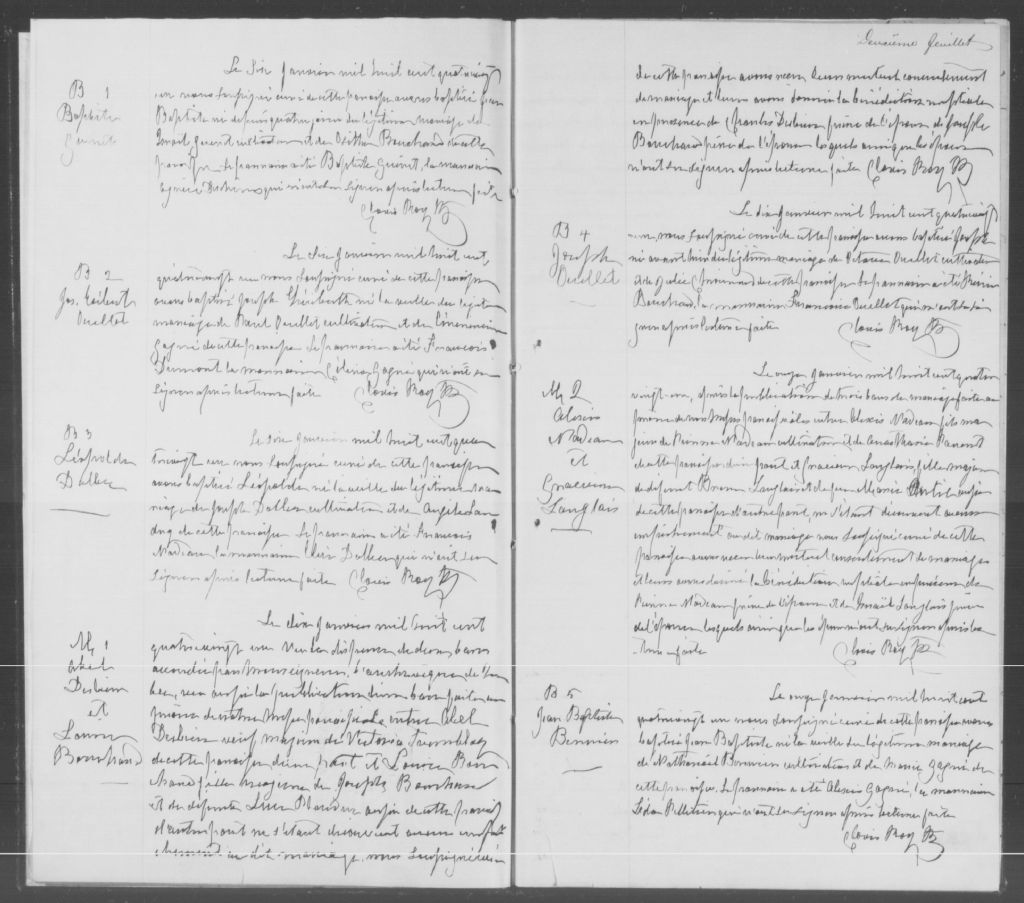 B 1
Baptiste
Guéret
Le Six Janvier mil huit cent quatrevingt
un nous soussigné curé de cette paroisse avons baptisé Jean
Baptiste né depuis quatre jours du légitime mariage de
Guéret cultivateur et de Bouchard de cette
paroisse. Le parrain a été Baptiste Guéret, la marraine
qui n'ont su signer après lecture faite
Clovis Roy Ptre
B 2
Jos. Heribert
Ouellet
Le Six Janvier mil huit cent
quatrevingt un nous soussigné curé de cette paroisse
avons baptisé Joseph né la veille du légitime
mariage de Ouellet cultivateur et de
Gagné de cette paroisse. Le parrain a été François
Dumont la marraine Gagné qui n'ont su
signer après lecture faite Clovis Roy Ptre
B 3
Léopold
Le Six Janvier mil huit cent quatre
vingt un nous soussigné curé de cette paroisse
avons baptisé Léopold né la veille du légitime ma
riage de Joseph cultivateur et de
de cette paroisse. Le parrain a été François
Nadeau la marraine qui n'ont su
signer après lecture faite Clovis Roy Ptre
M 1
Abel
Desbiens
et
Louise
Bouchard
Le dix Janvier mil huit cent
quatrevingt un Vu la dispense de deux bans
accordée par Monseigneur l'archevêque de Qué
bec, vu aussi la publication d'un ban faite au
prône de notre Messe paroissiale entre Abel
Desbiens veuf majeur de Victoria Tremblay
de cette paroisse d'une part et Louise Bou
chard fille mineure de Joseph Bouchard
et de défunte Luce aussi de cette paroisse
d'autre part ne s'étant découvert aucun empê
chement au dit mariage, nous soussigné curé
Deuxième feuillet
de cette paroisse avons reçu leur mutuel consentement
de mariage et leur avons donné la bénédiction nuptiale
en présence de Charles Desbiens père de l'époux et de Joseph
Bouchard père de l'épouse lesquels ainsi que les époux
n'ont su signer après lecture faite Clovis Roy Ptre
B 4
Joseph
Ouellet
Le dix Janvier mil huit cent quatrevingt
un, nous soussigné curé de cette paroisse avons baptisé Joseph
né avant hier du légitime mariage de Octave Ouellet cultivateur
et de de cette paroisse. Le parrain a été
Bouchard, la marraine Ouellet qui n'ont su si
gner après lecture faite Clovis Roy Ptre
M 2
Alexis
Nadeau
et
Gracieuse
Langlais
Le onze Janvier mil huit cent quatre
vingt-un, après la publication de trois bans de mariage faite au
prône de nos Messes paroissiales entre Alexis Nadeau fils ma
jeur de Nadeau cultivateur et de Marie
de cette paroisse d'une part et Gracieuse Langlais, fille majeure
de défunt Bruno Langlais et de feue Marie aussi
de cette paroisse d'autre part, ne s'étant découvert aucun
empêchement au dit mariage nous soussigné curé de cette
paroisse avons reçu leur mutuel consentement de mariage
et leur avons donné la bénédiction nuptiale en présence de
Nadeau père de l'époux et de Langlais frère
de l'épouse lesquels ainsi que les époux n'ont su signer après lec
ture faite Clovis Roy Ptre
B 5
Jean Baptiste
Le onze Janvier mil huit cent
quatrevingt un nous soussigné curé de cette paroisse avons
baptisé Jean Baptiste né la veille du légitime mariage
de Nathanaël cultivateur et de Marie Gagné de
cette paroisse. Le parrain a été Alexis Gagné, la marraine
Pelletier qui n'ont su signer après lecture faite
Clovis Roy Ptre